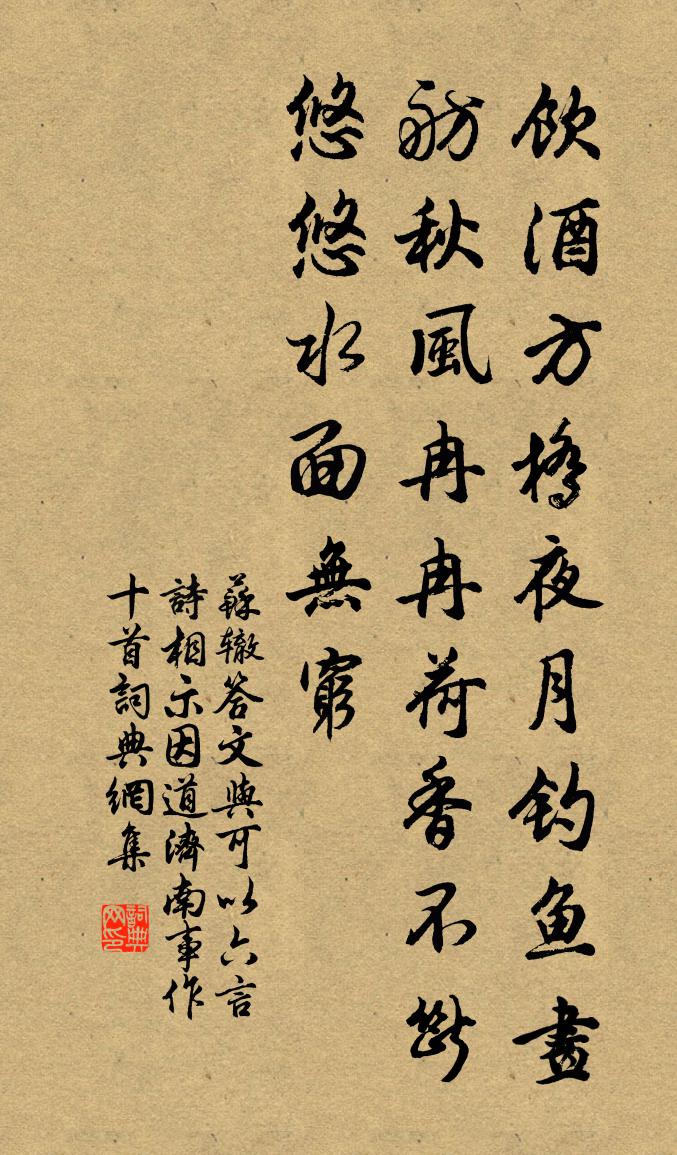 飲酒方橋夜月釣魚畫
舫秋風冉冉荷香不斷
悠悠水面無窮
蘇辙答文與可以六言
詩相示因道濟南事作
十首詞典網集
詞典
网印